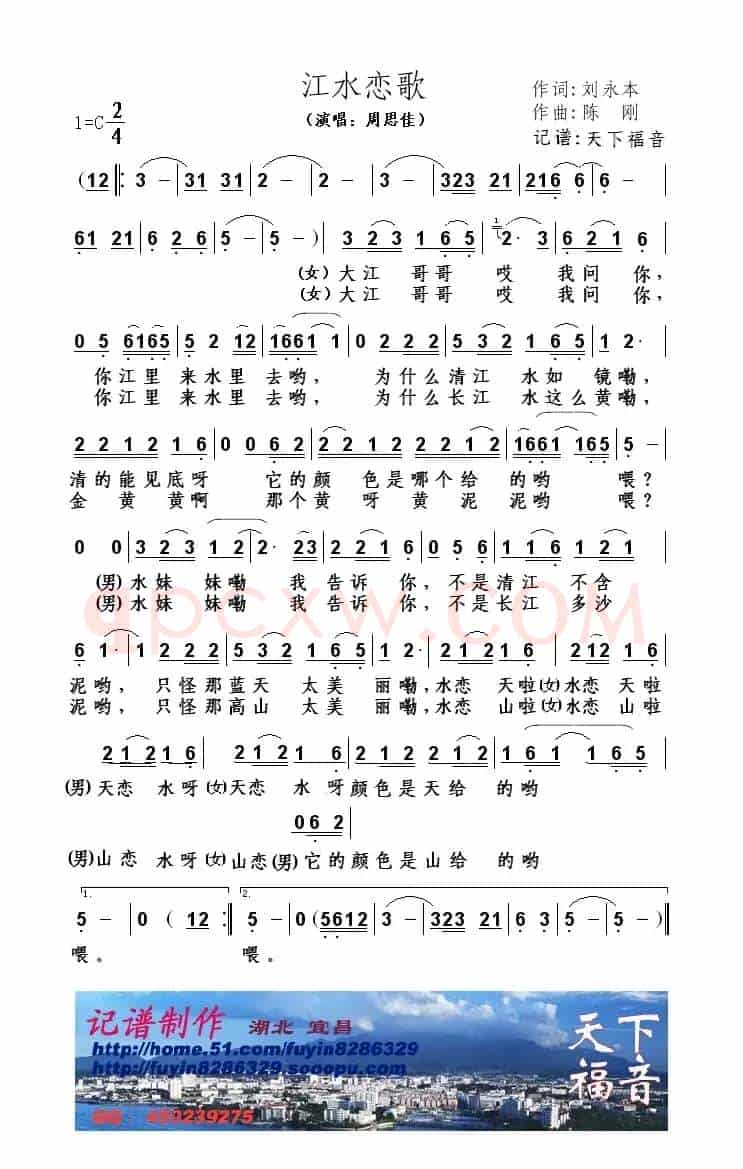 江水恋歌
作词: 刘永本
1=C 2/4
（演唱：周思佳）
作曲: 陈 刚
记谱: 天下福音
(12 3 - 31 31 2 - 2 - 323 21 216 6 6 -
61 21 6 2 6 5 - 5 - ) 3 2 3 1 6 5 1 2· 3 6 2 1 6
(女)大江 哥哥 哎 我问 你,
(女)大江 哥哥 哎 我问 你,
0 5 6165 5 2 12 1661 1 0 2 2 2 5 3 2 1 6 5 1 2·
你江里 来水里 去哟, 为什么清江 水如 镜嘞,
你江里 来水里 去哟, 为什么长江 水这么黄嘞,
2 2 1 2 1 6 0 0 6 2 2 1 2 2 1 2 1661 165 5 -
清的能见底呀 它的颜 色是哪个给 的哟 喂?
金 黄 黄啊 那个黄 呀 黄 泥 泥哟 喂?
0 0 3 2 3 1 2 2· 23 2 2 1 6 0 5 6 1 1 6 1 2 1
(男)水妹 妹嘞 我 告诉 你, 不是清江 不含
(男)水妹 妹嘞 我 告诉 你, 不是长江 多沙
6 1· 1 2 2 2 5 3 2 1 6 5 1 2· 2 1 2 1 6 2 1 2 1 6
泥哟, 只怪那蓝天 太美 丽嘞,水恋 天啦(女)水恋 天啦
泥哟, 只怪那高山 太美 丽嘞,水恋 山啦(女)水恋 山啦
2 1 2 1 6 2 1 2 1 6 2 1 2 2 1 2 1 6 1 1 6 5
(男)天恋 水呀(女)天恋 水 呀颜色是天给 的哟
0 6 2
(男)山恋 水呀(女)山恋(男)它的颜色是山给 的哟
1. 2.
5 - 0 ( 12 5 - 0 (5612 3 - 323 21 612 6 3 5 - 5 - )
喂。 喂。
记谱制作 湖北 宜昌
http://home.51.com/fuyin8286329
http://fuyin8286329.sooopu.com
天下
福音
qpcxw.COM